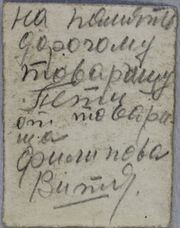 на память
дорогому
товарищу
Пети
от товари
ща
Филипова
Вити.